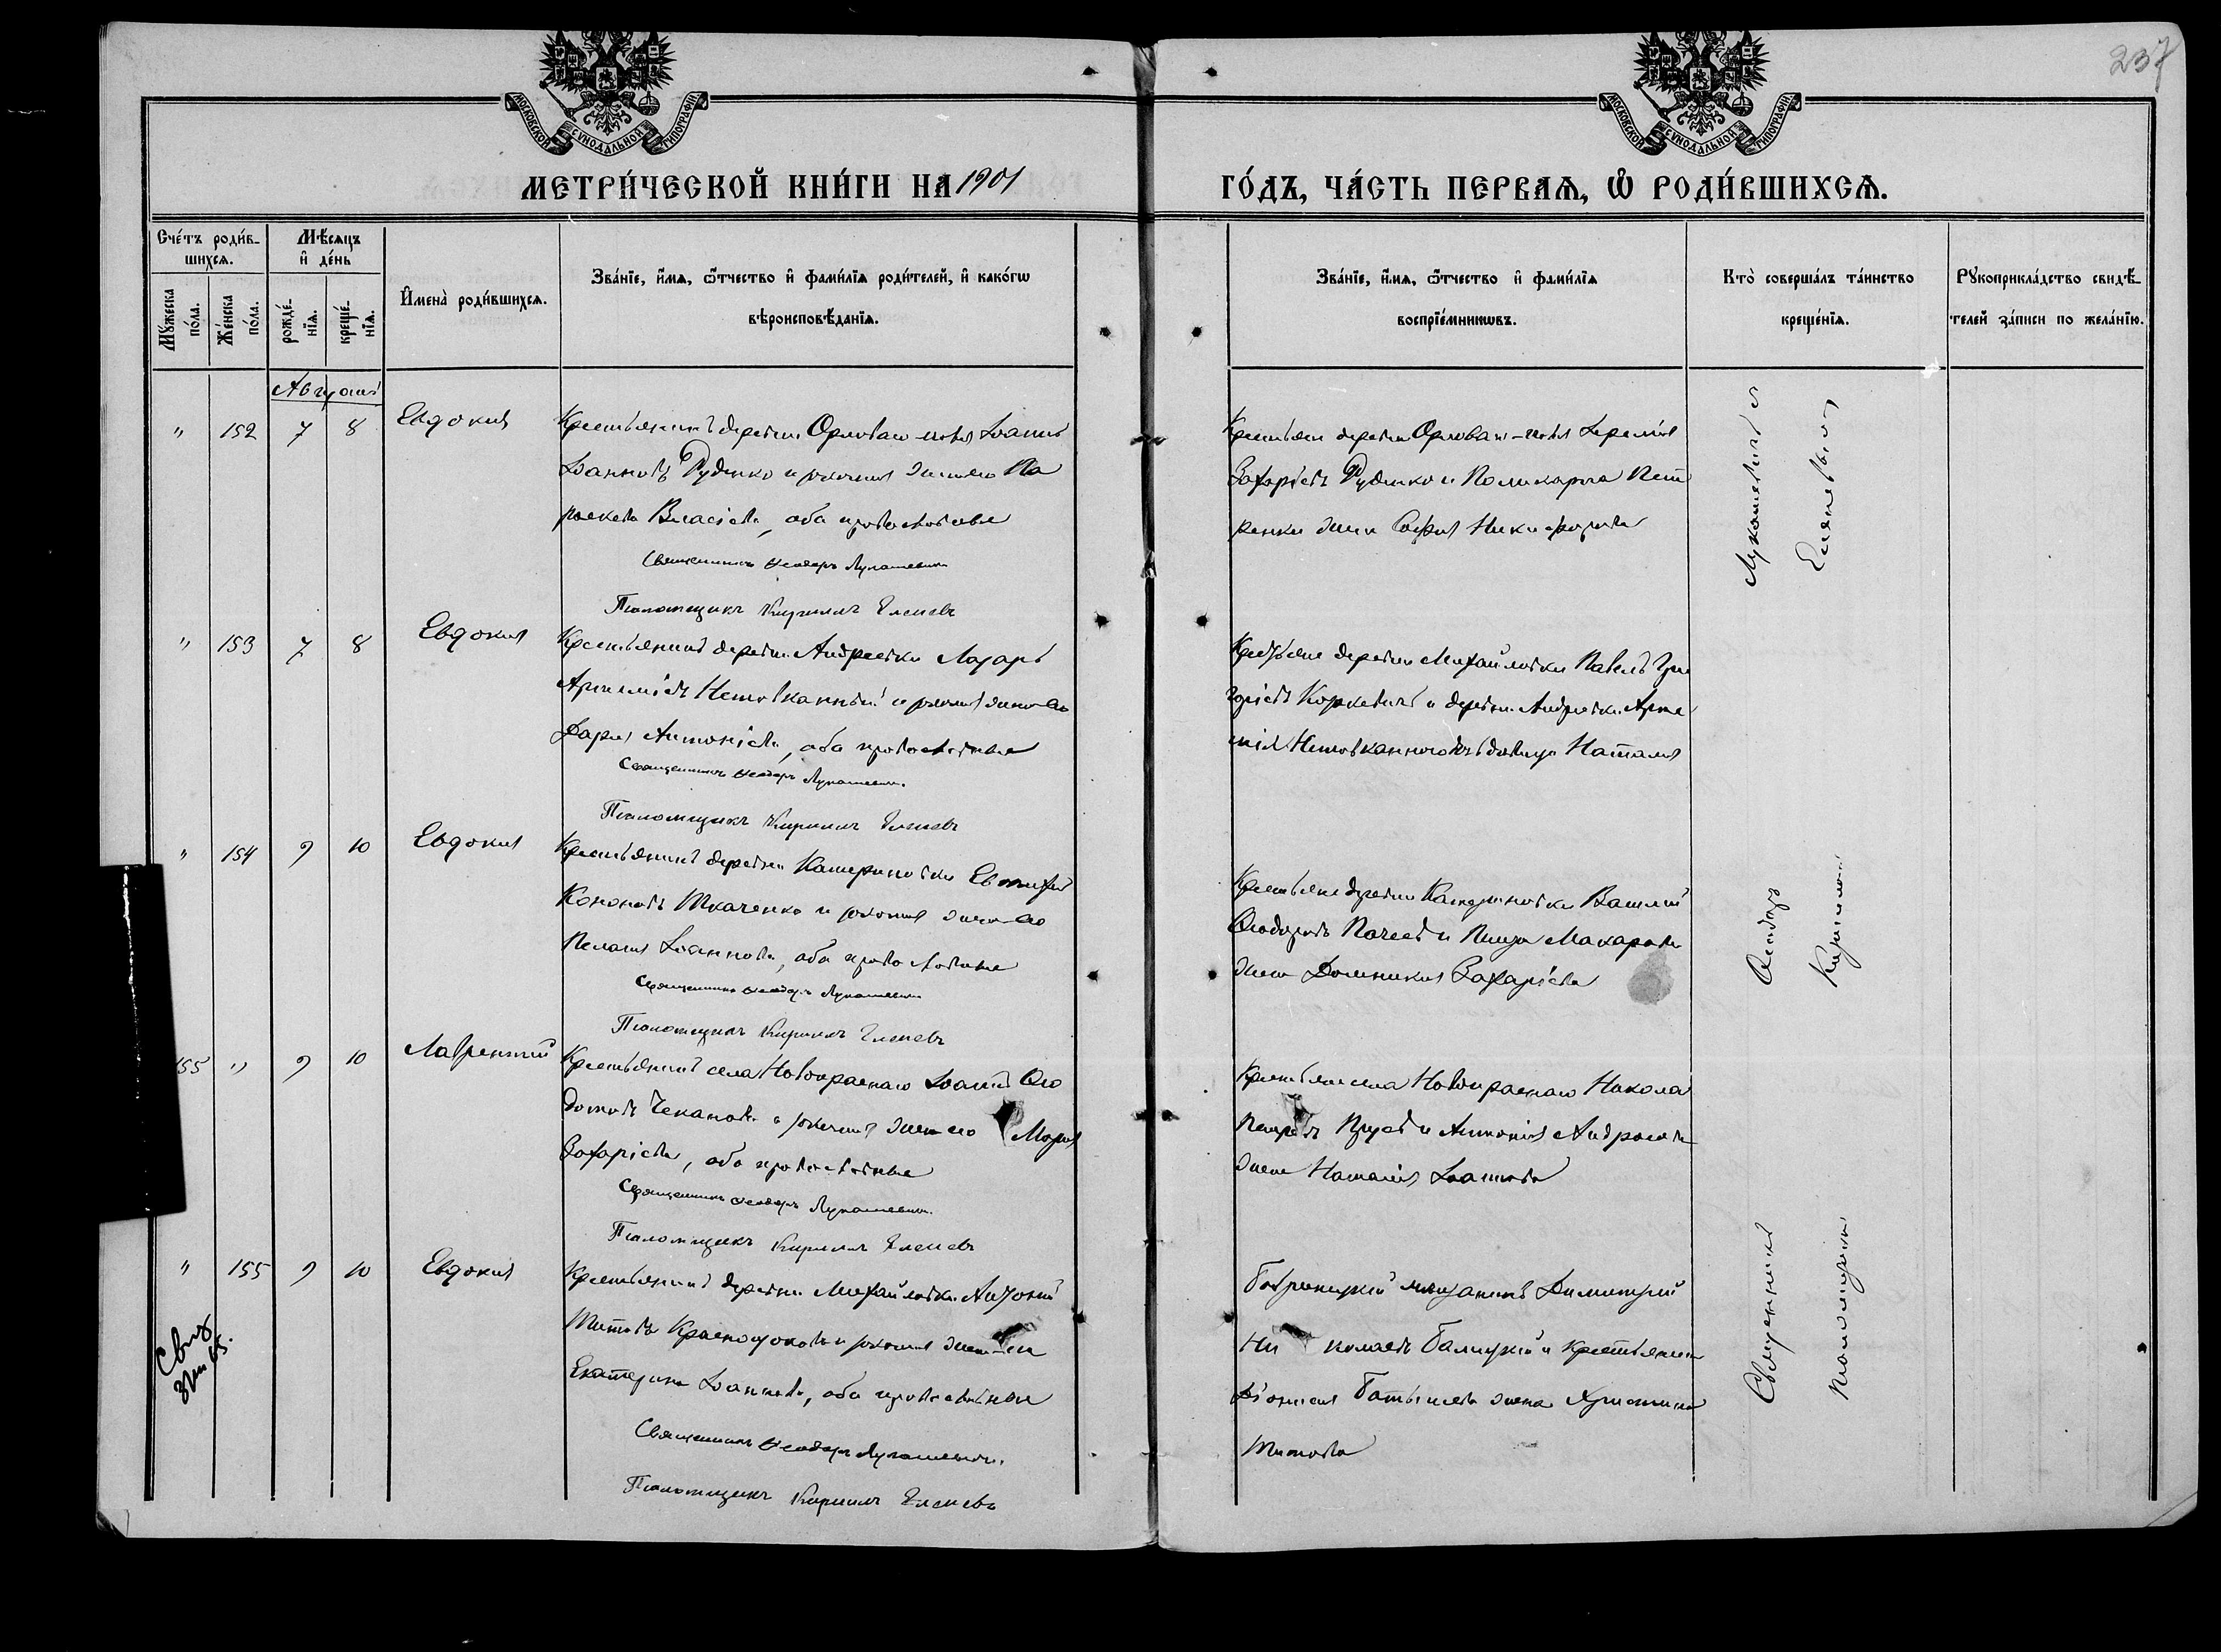 237
МОСКОВСКОЙ СѴНОДАЛЬНОЙ ТИПОГРАФІИ
МОСКОВСКОЙ СѴНОДАЛЬНОЙ ТИПОГРАФІИ
МЕТРИ́ЧЕСКОЙ КНИ́ГИ НА 1901
ГО́ДЪ, ЧА́СТЬ ПЕРВАѦ, Ѡ҆ РОДИ́ВШИХСѦ.
Сче́тъ роди́в-
шихсѧ.
Мꙋ́жеска по́ла.
Же́нска по́ла.
Мѣ́сѧцъ
и҆ де́нь
рожде́-
нїѧ.
креще́-
нїѧ.
И҆мена̀ роди́вшихсѧ.
Зва́нїе, и҆́мѧ, ѻ҆́тчество и҆ фами́лїѧ роди́телей, и҆ како́гѡ
вѣроисповѣ́данїѧ.
Зва́нїе, и҆́мѧ, ѻ҆́тчество и҆ фами́лїѧ
воспрїе́мникѡвъ.
Кто̀ соверша́лъ та́инство
креще́нїѧ.
Рꙋкоприкла́дство свидѣ́-
телей за́писи по жела́нїю.
Августъ
" 152 7 8 Евдокия
Крестьянинъ деревни Орловой Іоаннъ
Іоанновъ Руденко и законная жена его Па
раскева Власіева, оба православные
Священникъ Ѳеодоръ Лукашевичъ
Псаломщикъ Кириллъ Еленевъ
Крестьяне деревни Орловой Іеремія
Захаріевъ Руденко и Поликарпа Пет
ренки жена Софія Никифорова
" 153 7 8 Евдокия
Крестьянинъ деревни Андреевки Лазарь
Артеміевъ Нетовканный и законная жена его
Дарія Антоніева, оба православные
Священникъ Ѳеодоръ Лукашевичъ.
Псаломщикъ Кириллъ Еленевъ
Крестьяне деревни Михайловки Павелъ Гри
горіевъ Коркевичъ и деревни Андреевки Арте
мія Нетовканнаго вдовица Наталія
" 154 9 10 Евдокия
Крестьянинъ деревни Катериновки Евтихій
Кононовъ Ткаченко и законная жена его
Пелагия Іоаннова, оба православные
Священникъ Ѳеодоръ Лукашевичъ
Псаломщикъ Кириллъ Еленевъ
Крестьяне деревни Катериновки Василій
Ѳеодоровъ и Макарова
жена Домникия Захаріева
155 " 9 10 Лаврентий
Крестьянинъ села Новокраснаго Іоаннъ Ѳео
дотовъ Чекановъ и законная жена его Марія
Захаріева, оба православные
Священникъ Ѳеодоръ Лукашевичъ.
Псаломщикъ Кириллъ Еленевъ
Крестьяне села Новокраснаго Никола
Петровъ и Антонія Андросова
жена Наталія Іоаннова
" 155 9 10 Евдокия
Крестьянинъ деревни Михайловки
Титовъ и законная жена его
Екатерина Іоаннова, оба православные
Священникъ Ѳеодоръ Лукашевичъ.
Псаломщикъ Кириллъ Еленевъ
Бобринецкій мещанинъ Димитрий
Николаевъ Балицкій и крестьянина
Діонисия жена Христина
Титова
Священникъ Ѳеодоръ Лукашевичъ и
Псаломщикъ Кириллъ Еленевъ